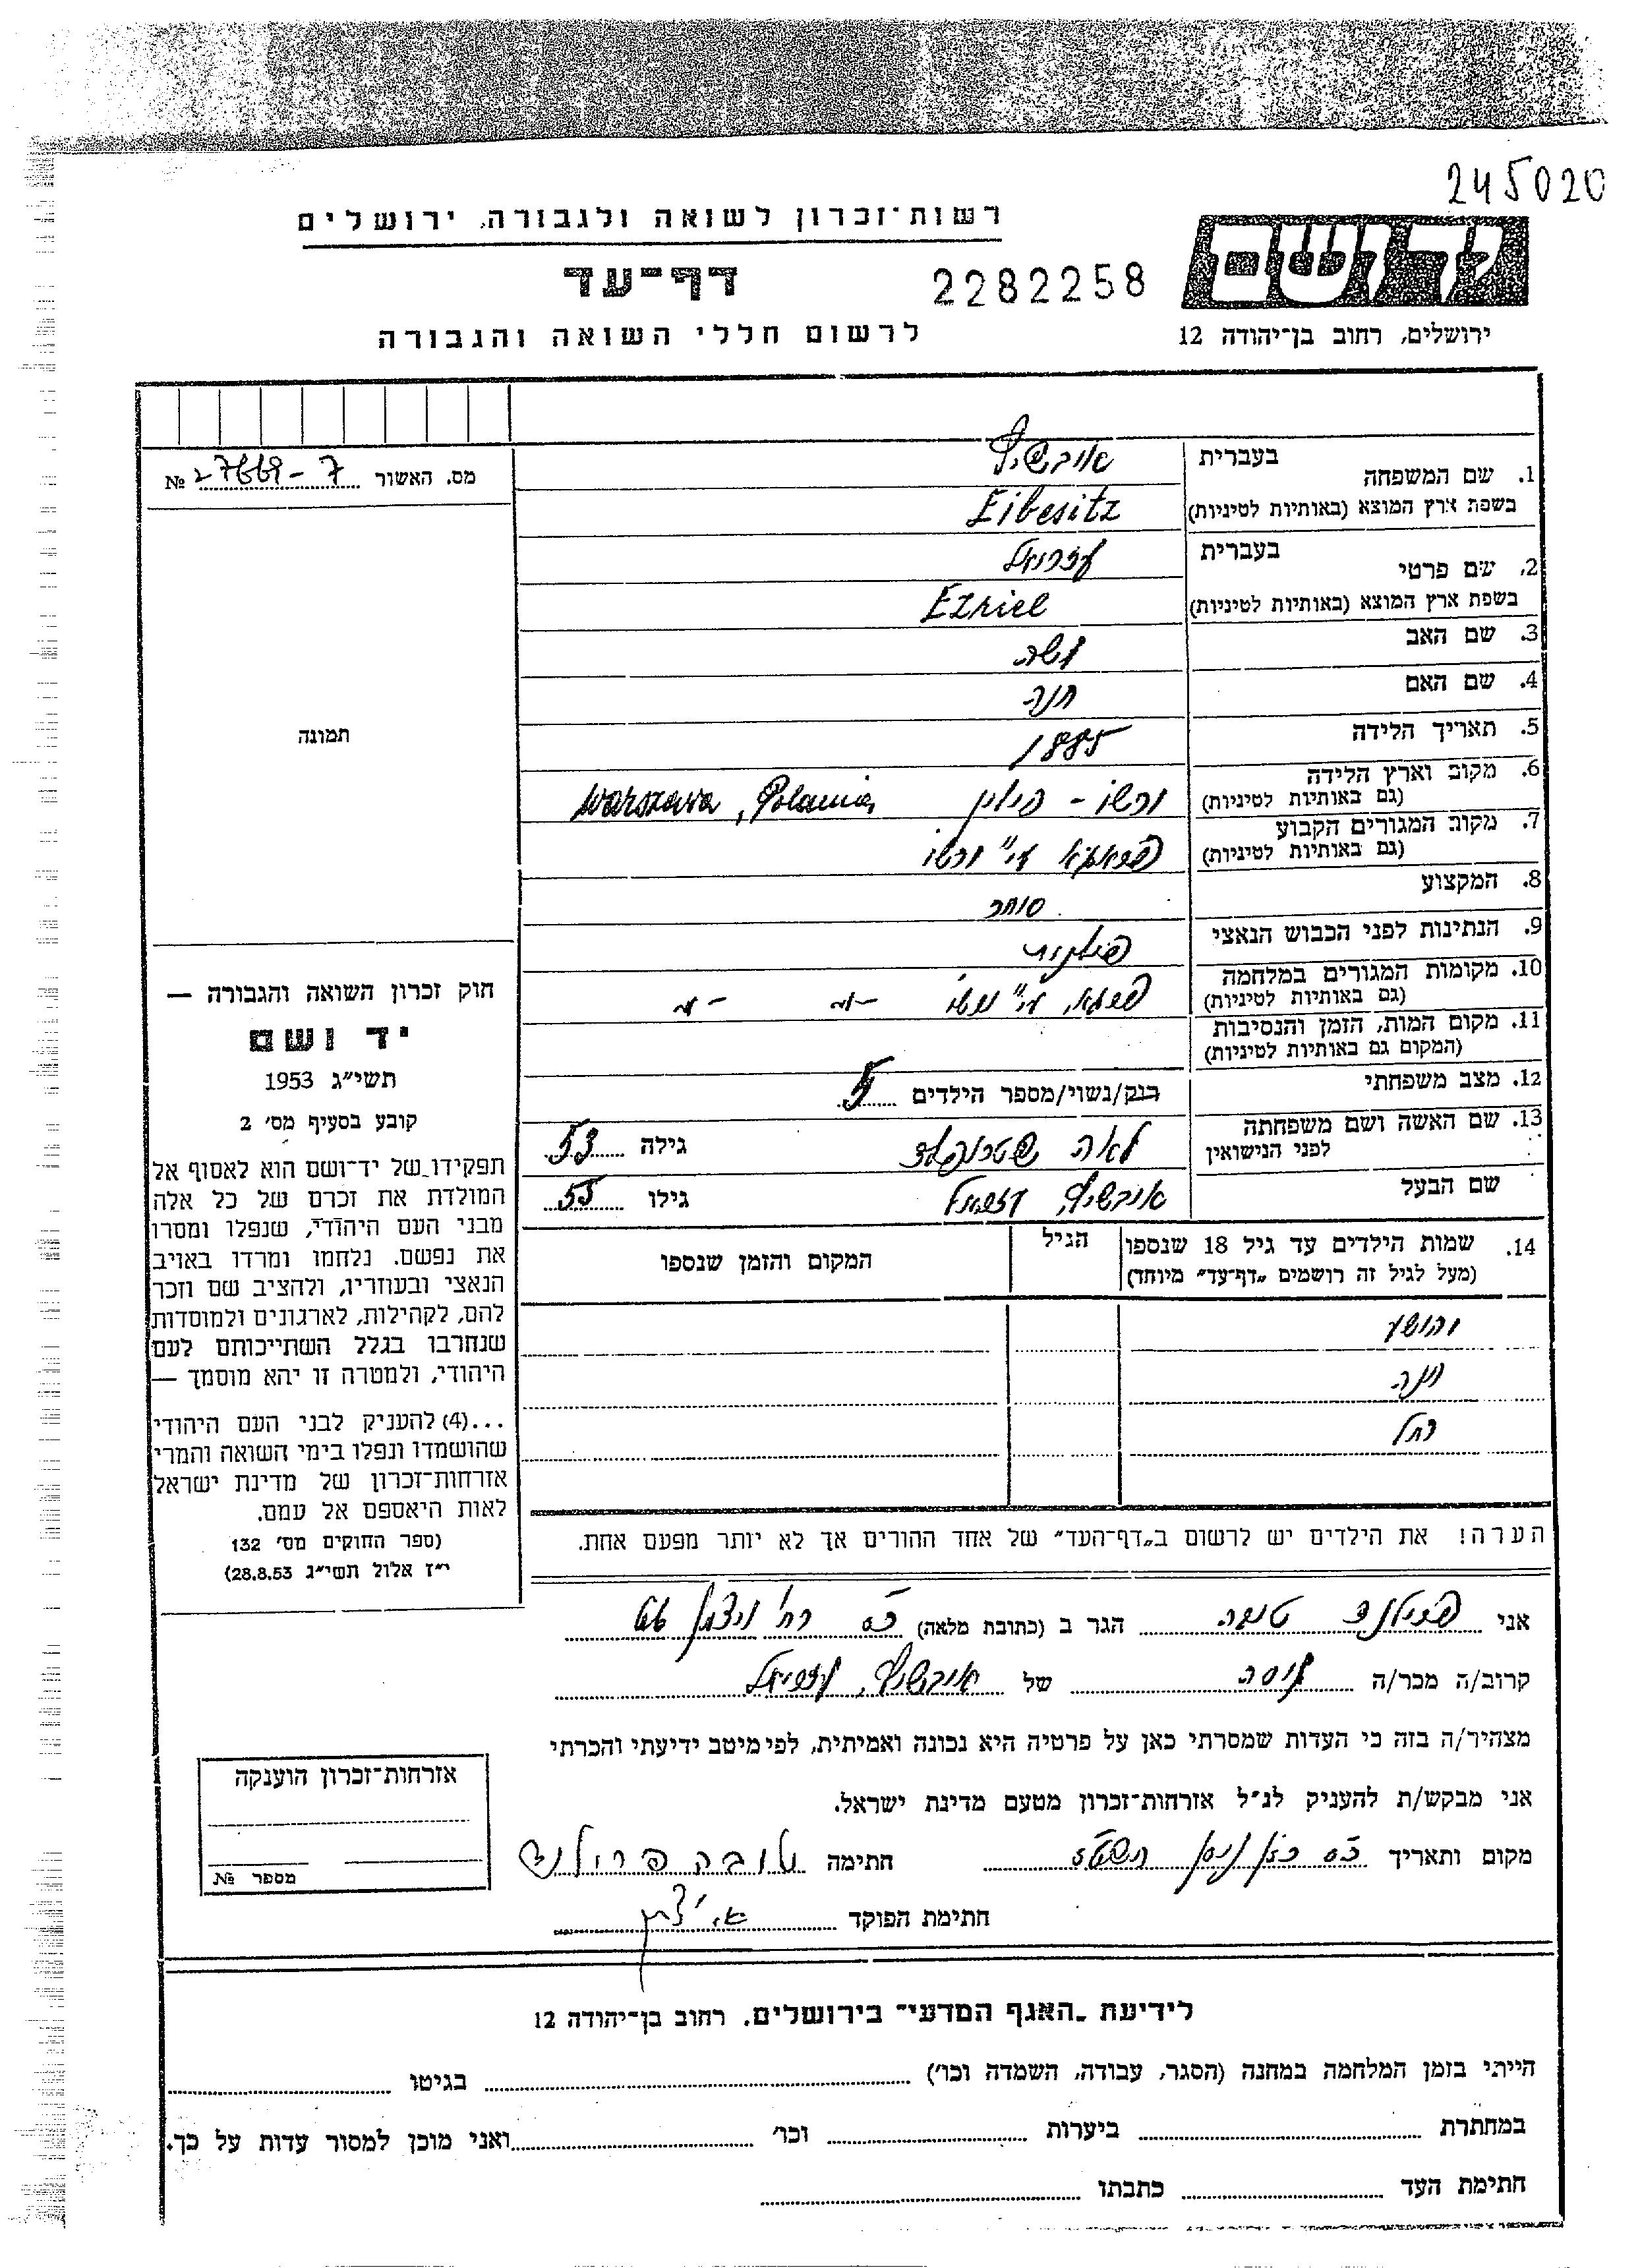 245020
רשות־זכרון לשואה ולגבורה, ירושלים
יד ושם
דף־עד
2282258
לרשום חללי השואה והגבורה
ירושלים, רחוב בן־יהודה 12
מס. האשור №
1. שם המשפחה
בעברית
אייבשיץ
בשפת ארץ המוצא (באותיות לטיניות)
Eibesitz
2. שם פרטי
בעברית
עזריאל
בשפת ארץ המוצא (באותיות לטיניות)
Ezriel
3. שם האב משה
4. שם האם חנה
5. תאריך הלידה 1885
6. מקום וארץ הלידה
(גם באותיות לטיניות)
ורשו - פולין Warszawa, Polania
7. מקום המגורים הקבוע
(גם באותיות לטיניות)
פראגא ע"י ורשו
8. המקצוע סוחר
9. הנתינות לפני הכבוש הנאצי פולנית
10. מקומות המגורים במלחמה
(גם באותיות לטיניות)
פראגא, ע"י ורשו
11. מקום המות, הזמן והנסיבות
(המקום גם באותיות לטיניות)
12. מצב משפחתי
רנק/נשוי/מספר הילדים 5
13. שם האשה ושם משפחתה
לפני הנישואין
לאה גילה 53
שם הבעל אייבשיץ, עזריאל גילו 55
14. שמות הילדים עד גיל 18 שנספו
(מעל לגיל זה רושמים "דף־עד" מיוחד)
הגיל
המקום והזמן שנספו
יהושע
רחל
הערה! את הילדים יש לרשום ב"דף־העד" של אחד ההורים אך לא יותר מפעם אחת.
תמונה
חוק זכרון השואה והגבורה —
יד ושם
תשי"ג 1953
קובע בסעיף מס' 2
תפקידו של יד־ושם הוא לאסוף אל
המולדת את זכרם של כל אלה
מבני העם היהודי, שנפלו ומסרו
את נפשם. נלחמו ומרדו באויב
הנאצי ובעוזריו, ולהציב שם וזכר
להם, לקהילות, לארגונים ולמוסדות
שנחרבו בגלל השתייכותם לעם
היהודי, ולמטרה זו יהא מוסמך —
...(4) להעניק לבני העם היהודי
שהושמדו ונפלו בימי השואה והמרי
אזרחות־זכרון של מדינת ישראל
לאות היאספם אל עמם.
(ספר החוקים מס' 132
י"ז אלול תשי"ג 28.8.53)
אני פרילנד טובה הגר ב (כתובת מלאה)
קרוב/ה מכר/ה של אייבשיץ, עזריאל
מצהיר/ה בזה כי העדות שמסרתי כאן על פרטיה היא נכונה ואמיתית, לפי מיטב ידיעתי והכרתי
אני מבקש/ת להעניק לנ"ל אזרחות־זכרון מטעם מדינת ישראל.
מקום ותאריך חתימה טובה פרילנד
חתימת הפוקד
אזרחות־זכרון הוענקה
מספר №
לידיעת "האגף המדעי" בירושלים. רחוב בן־יהודה 12
הייתי בזמן המלחמה במחנה (הסגר, עבודה, השמדה וכו') בגיטו
במחתרת ביערות וכו' ואני מוכן למסור עדות על כך.
חתימת העד כתבתו